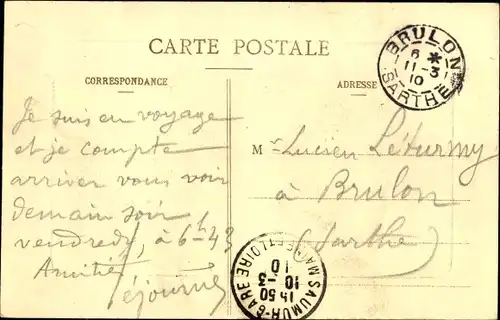 CARTE POSTALE
CORRESPONDANCE
ADRESSE
BRULON
6 *
11-3
10
SARTHE
Je suis en voyage
et je compte
arriver vous voir
demain soir
vendredi, à 6h43
Amitiés
Séjourné
Mr Lucien Léturmy
à Brulon
(Sarthe)
SAUMUR-GARE
MAINE ET LOIRE
14 50
10 -3
10